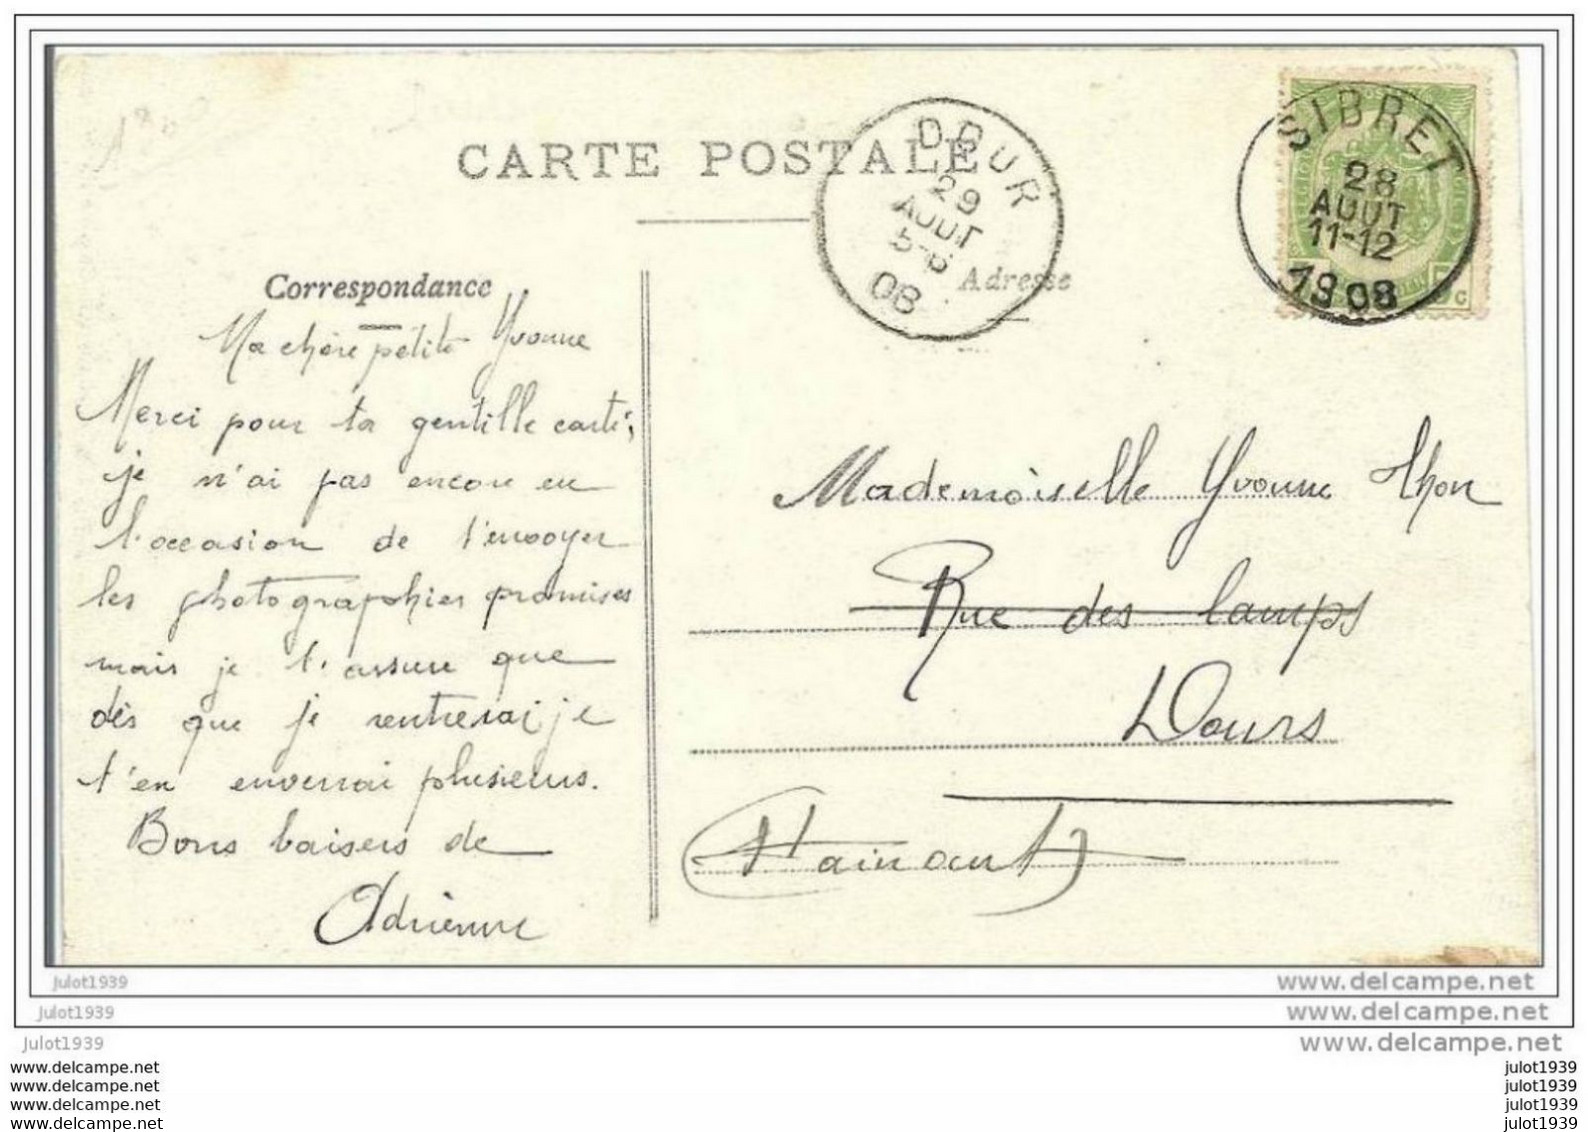 CARTE POSTALE
DOUR
29
AOUT
5-6
08
SIBRET
28
AOUT
11-12
1908
Correspondance
Adresse
Ma chère petite Yvonne
Merci pour ta gentille carte,
je n'ai pas encore eu
l'occasion de t'envoyer
les photographies promises
mais je t'assure que
dès que je rentrerai je
t'en enverrai plusieurs.
Bons baisers de
Adrienne
Mademoiselle Yvonne Thon
Rue des Camps
Dours
(Hainaut)
julot1939
www.delcampe.net
julot1939
www.delcampe.net
julot1939
www.delcampe.net
www.delcampe.net
julot1939
www.delcampe.net
julot1939
www.delcampe.net
julot1939
www.delcampe.net
julot1939